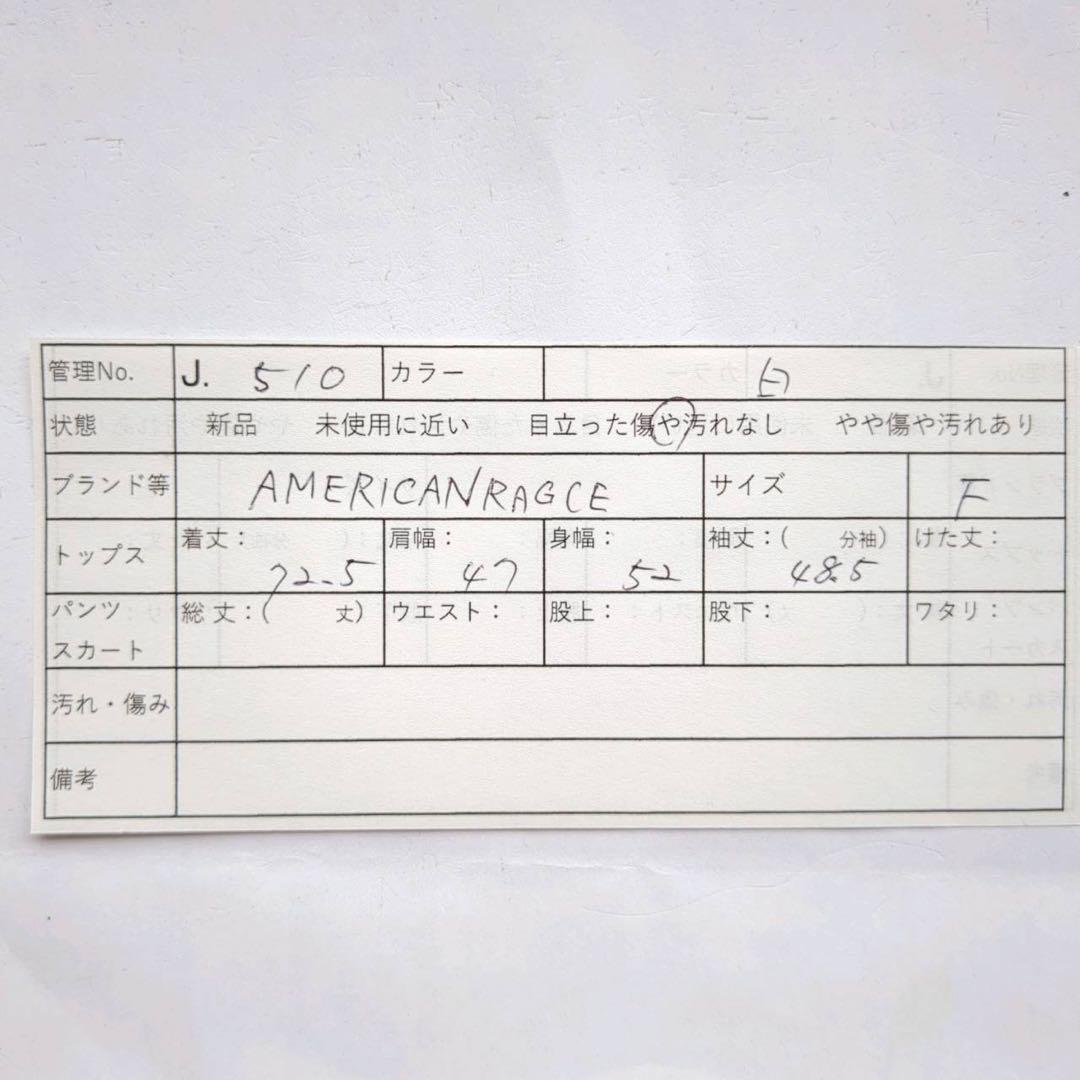 管理No. J. 510 カラー 白
状態 新品 未使用に近い 目立った傷や汚れなし やや傷や汚れあり
ブランド等 AMERICANRAGCE サイズ F
トップス 着丈: 72.5 肩幅: 47 身幅: 52 袖丈:( 分袖) 48.5 けた丈:
パンツ スカート 総丈:( 丈) ウエスト: 股上: 股下: ワタリ:
汚れ・傷み
備考